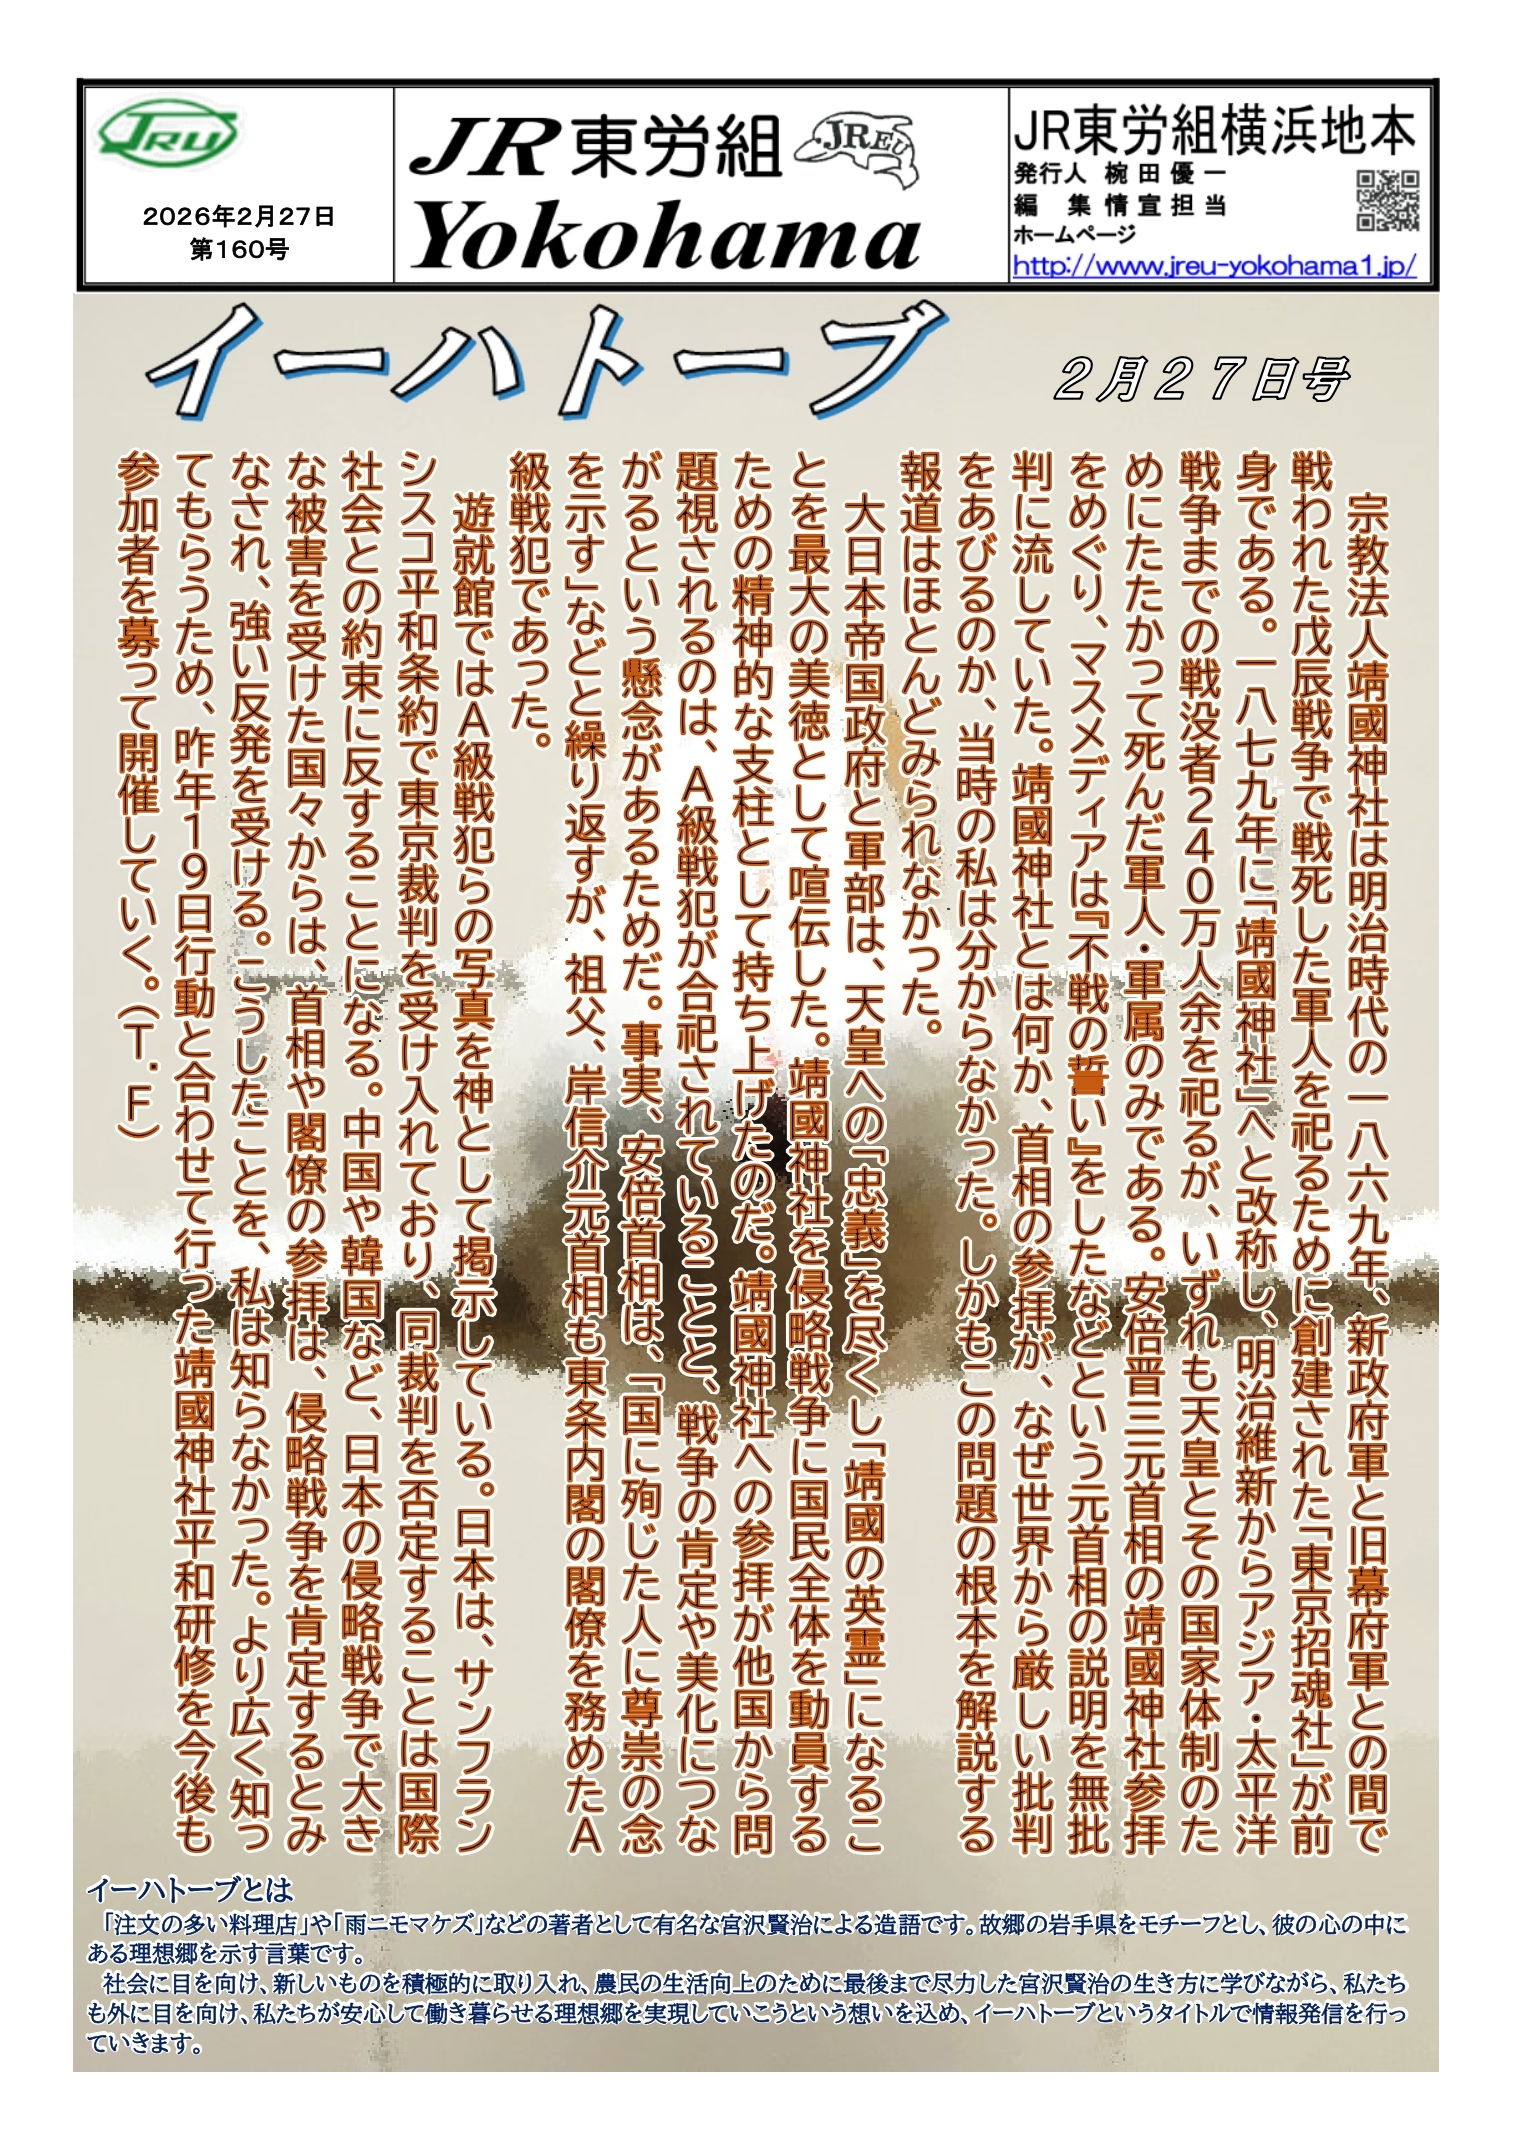 JRU
2026年2月27日
第160号
JR東労組
JREU
Yokohama
JR東労組横浜地本
発行人 椀田優一
編 集 情宣担当
ホームページ
http://www.jreu-yokohama1.jp/
イーハトーブ
2月27日号
宗教法人靖國神社は明治時代の一八六九年、新政府軍と旧幕府軍との間で
戦われた戊辰戦争で戦死した軍人を祀るために創建された「東京招魂社」が前
身である。一八七九年に「靖國神社」へと改称し、明治維新からアジア・太平洋
戦争までの戦没者240万人余を祀るが、いずれも天皇とその国家体制のた
めにたたかって死んだ軍人・軍属のみである。安倍晋三元首相の靖國神社参拝
をめぐり、マスメディアは『不戦の誓い』をしたなどという元首相の説明を無批
判に流していた。靖國神社とは何か、首相の参拝が、なぜ世界から厳しい批判
をあびるのか、当時の私は分からなかった。しかもこの問題の根本を解説する
報道はほとんどみられなかった。
大日本帝国政府と軍部は、天皇への「忠義」を尽くし「靖國の英霊」になるこ
とを最大の美徳として喧伝した。靖國神社を侵略戦争に国民全体を動員する
ための精神的な支柱として持ち上げたのだ。靖國神社への参拝が他国から問
題視されるのは、A級戦犯が合祀されていることと、戦争の肯定や美化につな
がるという懸念があるためだ。事実、安倍首相は、「国に殉じた人に尊崇の念
を示す」などと繰り返すが、祖父、岸信介元首相も東条内閣の閣僚を務めたA
級戦犯であった。
遊就館ではA級戦犯らの写真を神として掲示している。日本は、サンフラン
シスコ平和条約で東京裁判を受け入れており、同裁判を否定することは国際
社会との約束に反することになる。中国や韓国など、日本の侵略戦争で大き
な被害を受けた国々からは、首相や閣僚の参拝は、侵略戦争を肯定するとみ
なされ、強い反発を受ける。こうしたことを、私は知らなかった。より広く知っ
てもらうため、昨年19日行動と合わせて行った靖國神社平和研修を今後も
参加者を募って開催していく。(T.F)
イーハトーブとは
「注文の多い料理店」や「雨ニモマケズ」などの著者として有名な宮沢賢治による造語です。故郷の岩手県をモチーフとし、彼の心の中に
ある理想郷を示す言葉です。
社会に目を向け、新しいものを積極的に取り入れ、農民の生活向上のために最後まで尽力した宮沢賢治の生き方に学びながら、私たち
も外に目を向け、私たちが安心して働き暮らせる理想郷を実現していこうという想いを込め、イーハトーブというタイトルで情報発信を行っ
ていきます。